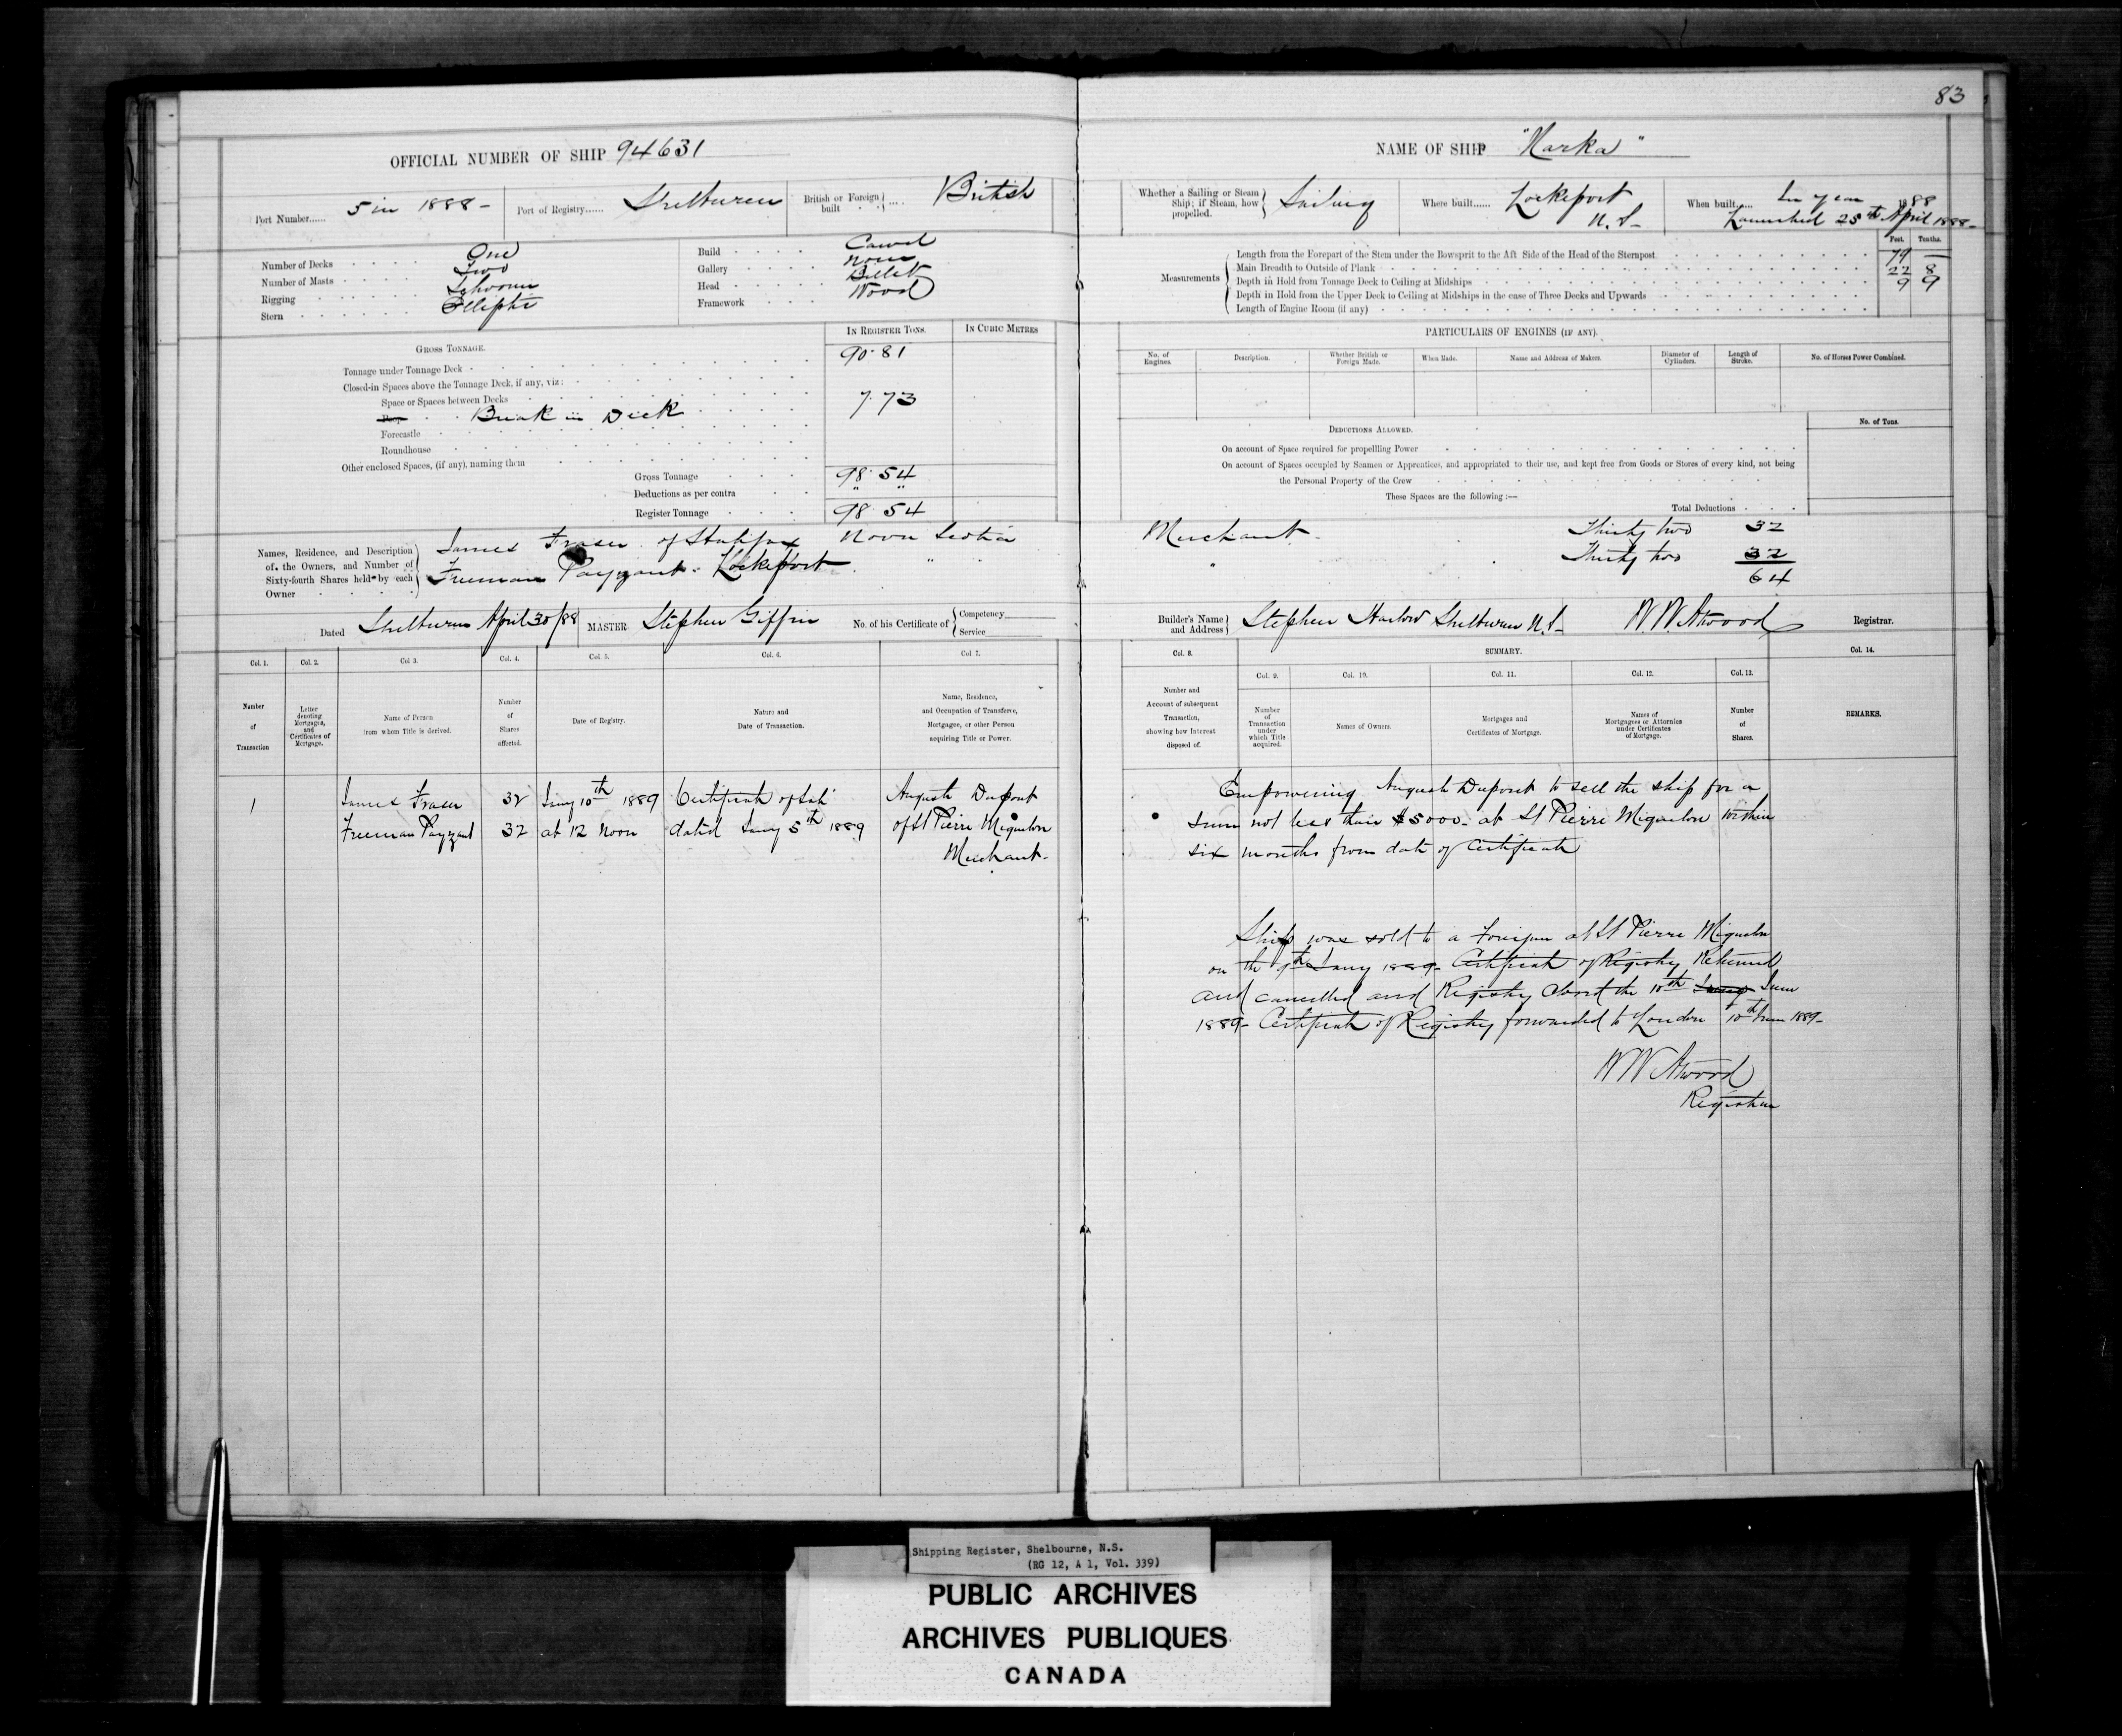 83
OFFICIAL NUMBER OF SHIP 94631
NAME OF SHIP "Narka"
Port Number...... 5 in 1888 -
Port of Registry...... Shelburne
British or Foreign built .... British
Whether a Sailing or Steam Ship; if Steam, how propelled. Sailing
Where built...... Lockeport N.S-
When built..... In year 1888
Launched 25th April 1888-
Number of Decks One
Number of Masts Two
Rigging Schooner
Stern Elliptic
Build Carvel
Gallery None
Head Billet
Framework Wood
Measurements
Feet. Tenths.
Length from the Forepart of the Stem under the Bowsprit to the Aft Side of the Head of the Sternpost 79 —
Main Breadth to Outside of Plank 22 8
Depth in Hold from Tonnage Deck to Ceiling at Midships 9 9
Depth in Hold from the Upper Deck to Ceiling at Midships in the case of Three Decks and Upwards
Length of Engine Room (if any)
IN REGISTER TONS. IN CUBIC METRES
GROSS TONNAGE.
Tonnage under Tonnage Deck 90.81
Closed-in Spaces above the Tonnage Deck, if any, viz:
Space or Spaces between Decks
Poop Break in Deck 7.73
Forecastle
Roundhouse
Other enclosed Spaces, (if any), naming them
Gross Tonnage 98.54
Deductions as per contra " "
Register Tonnage 98 54
PARTICULARS OF ENGINES (IF ANY).
No. of Engines. Description. Whether British or Foreign Made. When Made. Name and Address of Makers. Diameter of Cylinders. Length of Stroke. No. of Horses Power Combined.
DEDUCTIONS ALLOWED. No. of Tons.
On account of Space required for propellling Power
On account of Spaces occupied by Seamen or Apprentices, and appropriated to their use, and kept free from Goods or Stores of every kind, not being
the Personal Property of the Crew
These Spaces are the following :—
Total Deductions
Names, Residence, and Description of the Owners, and Number of Sixty-fourth Shares held by each Owner
James Fraser of Halifax Nova Scotia Merchant Thirty two 32
Freeman Payzant. Lockeport " " " Thirty two 32
64
Dated Shelburne April 30/88
MASTER Stephen Giffin
No. of his Certificate of Competency Service
Builder's Name and Address Stephen Harlow Shelburne N.S-
W.W. Atwood Registrar.
Col. 1. Col. 2. Col 3. Col. 4. Col. 5. Col. 6. Col 7.
Number of Transaction
Letter denoting Mortgages, and Certificates of Mortgage.
Name of Person from whom Title is derived.
Number of Shares affected.
Date of Registry.
Nature and Date of Transaction.
Name, Residence, and Occupation of Transferee, Mortgagee, or other Person acquiring Title or Power.
Col. 8. SUMMARY. Col. 14.
Col. 9. Col. 10. Col. 11. Col. 12. Col. 13.
Number and Account of subsequent Transaction, showing how Interest disposed of.
Number of Transaction under which Title acquired.
Names of Owners.
Mortgages and Certificates of Mortgage.
Names of Mortgagees or Attornies under Certificates of Mortgage.
Number of Shares.
REMARKS.
1 James Fraser 32 Jany 10th 1889 Certificate of Sale August Dupont
Freeman Payzant 32 at 12 Noon dated Jany 5th 1889 of St Pierre Miquelon
Merchant.
Empowering August Dupont to sell the ship for a
sum not less than $5000- at St Pierre Miquelon within
six months from date of Certificate
Ship was sold to a Foreigner at St Pierre Miquelon
on the Jany 1889- Certificate of Registry Returned
and cancelled and Registry closed the 10th Jany June
1889- Certificate of Registry forwarded to London 10th June 1889-
W W Atwood
Registrar
Shipping Register, Shelbourne, N.S.
(RG 12, A 1, Vol. 339)
PUBLIC ARCHIVES
ARCHIVES PUBLIQUES
CANADA